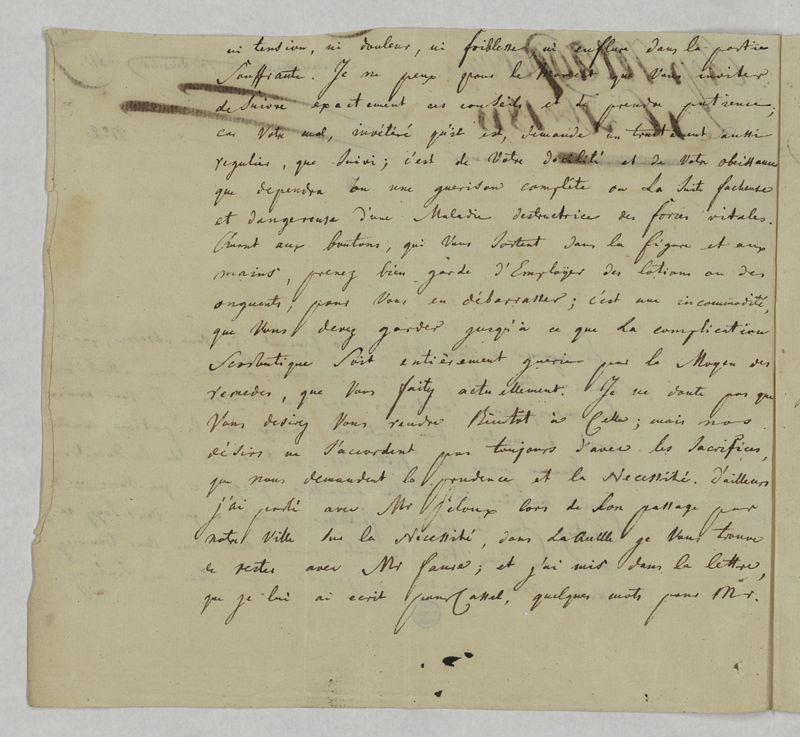 ni tension, ni douleur, ni foiblesse ni enflure dans la partie
Souffrante. Je ne peux pour le Moment que Vous inviter
de Suivre exactement ces conseils et de prendre patience;
car Votre mal, invétéré qu'il est, demande un traitement aussi
regulier, que Suivi; c'est de Votre docilité et de Votre obeissance
que dependra ou une guerison complête ou La Suite facheuse
et dangereuse d'une Maladie destructrice des forces vitales.
Quant aux boutons, qui Vous Sortent dans la figure et aux
mains, prenez bien garde d'Employer des lotions ou des
onguents, pour Vous en débarrasser; c'est une incommodité,
que Vous devez garder jusqu'à ce que La complication
Scorbutique Soit entiérement guerie par le Moyen des
remedes, que Vous faites actuellement. Je ne doute pas que
Vous desirez Vous rendre Bientot à ; mais nos
désirs ne S'accordent pas toujours d'avec les Sacrifices,
que nous demandent la prudence et la Necessité. D'ailleurs
j'ai parlé avec Mr lors de Son passage par
notre Ville Sur la Necessité, dans Laquelle je Vous trouve
de rester avec Mr ; et j'ai mis dans la lettre,
que je lui ai ecrit pour Cassel, quelques mots pour Mr.